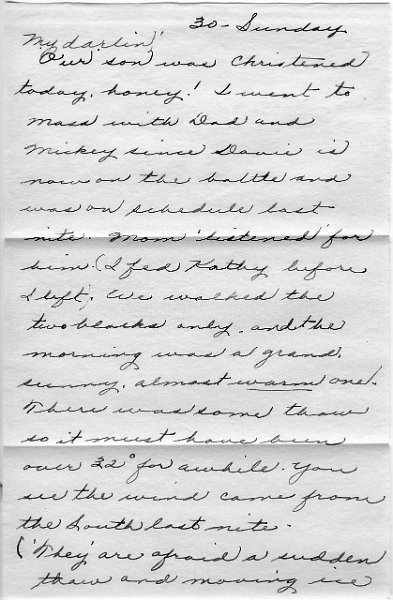 30 - Sunday
My darlin',
Our son was Christened
today, honey! I went to
Mass with Dad and
Mickey since Davie is
now on the bottle and
was on schedule last
nite. Mom 'listened' for
him (I fed Kathy before
I left). We walked the
two blocks only, and the
morning was a grand,
sunny, almost warm one.
There was some thaw
so it must have been
over 32° for awhile. You
see the wind came from
the South last nite.
('They' are afraid a sudden
thaw and moving ice